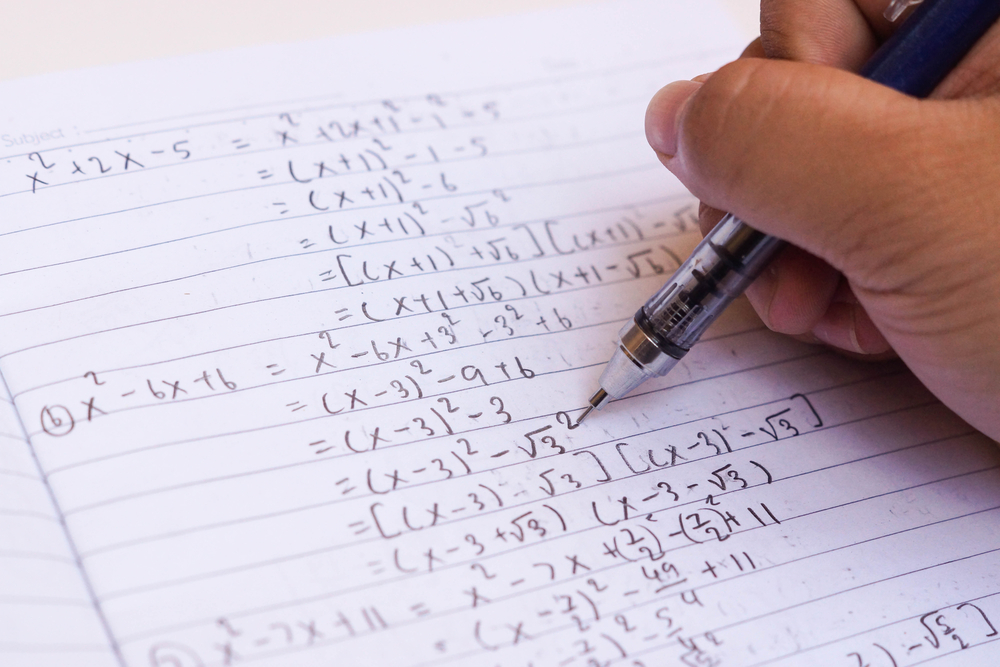 Subject :
x² + 2x - 5 = x² + 2x + 1² - 1² - 5
= (x+1)² - 1 - 5
= (x+1)² - 6
= (x+1)² - √6²
= [(x+1)² + √6] [(x+1) - √
= (x+1+√6) (x+1-√6)
(b) x² - 6x + 6 = x² - 6x + 3² - 3² + 6
= (x-3)² - 9 + 6
= (x-3)² - 3
= (x-3)² - √3²
= [(x-3) - √3] [(x-3) - √3]
= (x-3+√3) (x-3-√3)
x² - 7x + 11 = x² - 7x + (7/2)² - (7/2)² + 11
= (x - 7/2)² - 49/4 + 11
) - √5/2]